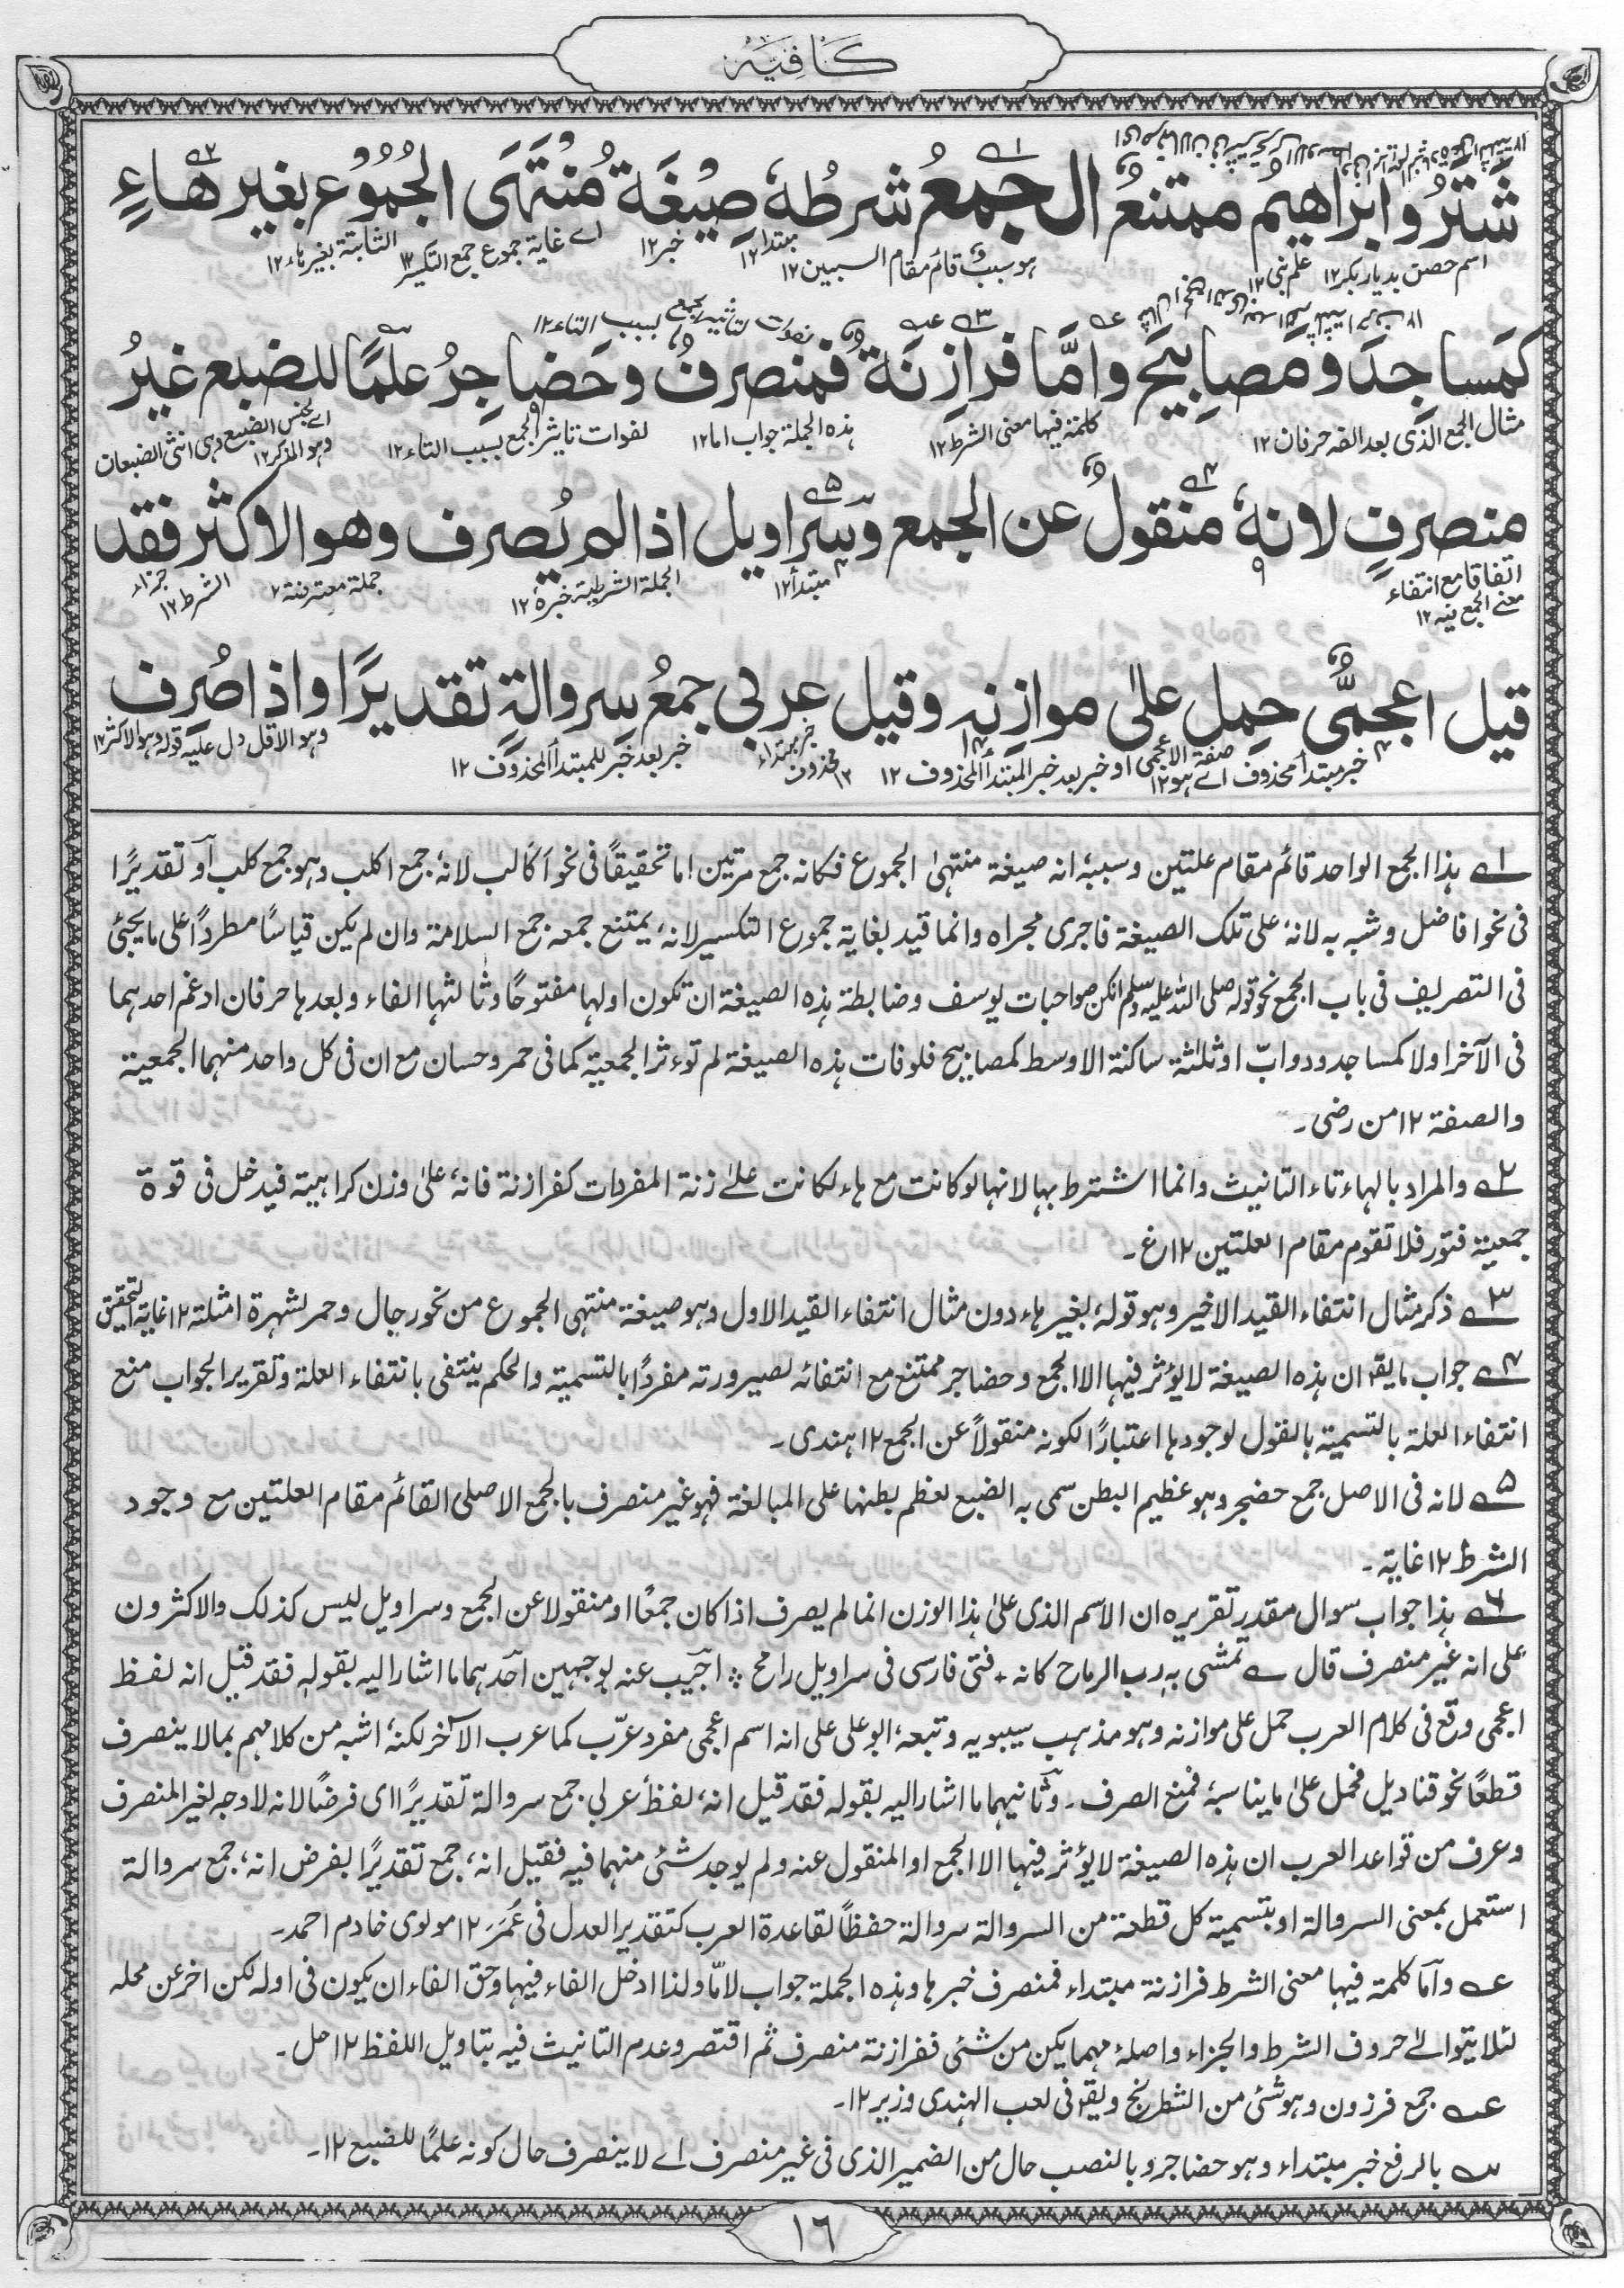 كَافِيَہ
شَتَرُ وابراهيم ممتنعُ الجمعُ شرطُهٗ صِيْغَةُ مُنْتَهَى الجُمُوْعِ بغير هاءٍ
اسم حصن بديار بكر ١٢ علم نبى ١٢ هو سبب قائم مقام السببين ١٢ مبتدا ١٢ خبر ١٢ اے غاية جموع جمع التكسير ١٢ الثابتة بغير هاء ١٢
كمَساجِدَ ومَصابِيْحَ وامَّا فرازِنَةٌ فمنصرفٌ وحَضاجِرُ علمًا للضبع غيرُ
مثال الجمع الذى بعد الفه حرفان ١٢ كلمة فيها معنى الشرط ١٢ هذه الجملة جواب اما ١٢ لفوات تاثير الجمع بسبب التاء ١٢ اے لجنس الضبع وهى انثى الضبعان
وهو المذكر ١٢
منصرفٍ لانهٗ منقولٌ عن الجمع وسراويل اذا لم يُصرف وهو الاكثر فقد
اتفاقا مع انتفاء مبتدأ ١٢ الجملة الشرطية خبره ١٢ جملة معترضة ٢ الشرط ١٢ جزاء
معنى الجمع فيه ١٢
قيل اعجمىٌّ حمل على موازنه وقيل عربى جمعُ سروالةٍ تقديرًا واذا صُرف
خبر مبتدأ محذوف اے هو ١٢ صفة الاعجمى او خبر بعد خبر المبتدأ المحذوف ١٢ خبر مبتداء محذوف ١٢ خبر بعد خبر للمبتدأ المحذوف ١٢ وهو الاقل دل عليه قوله وهو الاكثر ١٢
١ ہذا الجمع الواحد قائم مقام علتين وسببہٗ انہ صيغة منتہىٰ الجموع فكانہ جمع مرتين اما تحقيقًا فى نحو اَكالب لانہٗ جمع اكلب وہو جمع كلب اَو تقديرًا
فى نحو افاضل وشبہ بہ لانہٗ على تلك الصيغة فاجرى مجراه وانما قيد بغاية جموع التكسير لانہٗ يمتنع جمعہ جمع السلامة وان لم يكن قياسًا مطردًا على ما يجئ
فى التصريف فى باب الجمع نحو قولہ صلى اللہ عليہ وسلم انكن صواحبات يوسف وضابطة ہذه الصيغة ان تكون اولہا مفتوحًا وثالثہا الفاء وبعدہا حرفان ادغم احدہما
فى الآخر او لا كمساجد ودوابّ او ثلٰثة ساكنة الاوسط كمصابيح فلو فات ہذه الصيغة لم تؤثر الجمعية كما فى حمر وحسان مع ان فى كل واحد منہما الجمعية
والصفة ١٢ من رضى۔
٢ والمراد بالہاء تاء التانيث وانما اشترط بہا لانہا لو كانت مع ہاء لكانت علىٰ زنة المفردات كفرازنة فانہٗ علىٰ وزن كراہية فيدخل فى قوة
جمعية فتور فلا تقوم مقام العلتين ١٢ غ۔
٣ ذكر مثال انتفاء القيد الاخير وہو قولہٗ بغير ہاء دون مثال انتفاء القيد الاول وہو صيغة منتہى الجموع من نحو رجال وحمر لشہرة امثلتہ ١٢ غاية التحقيق
٤ جواب ما يقؔ ان ہذه الصيغة لا يؤثر فيہا الا الجمع وحضاجر ممتنع مع انتفائہ لصيرورتہ مفردًا بالتسمية والحكم ينتفى بانتفاء العلة وتقرير الجواب منع
انتفاء العلة بالتسمية بالقول لوجودہا اعتبارًا لكونہ منقولاً عن الجمع ١٢ ہندى۔
٥ لانہ فى الاصل جمع حضجر وہو عظيم البطن سمى بہ الضبع لعظم بطنہا على المبالغة فہو غير منصرف بالجمع الاصلى القائم مقام العلتين مع وجود
الشرط ١٢ غاية۔
٦ ہذا جواب سوال مقدر تقريره ان الاسم الذى علىٰ ہذا الوزن انما لم يصرف اذا كان جمعًا او منقولا عن الجمع وسراويل ليس كذلك والاكثرون
على انہ غير منصرف قال ؎ تمشى بہ رب الرماح كانہ ٭ فتى فارسى فى سراويل رامح ؞ اجيب عنہ بوجہين احدہما ما اشار اليہ بقولہ فقد قيل انہ لفظ
اعجمى وقع فى كلام العرب حمل على موازنہ وہو مذہب سيبويہ وتبعہٗ ابو على على انہ اسم اعجمى مفرد عرّب كما عرب الآخر لكنہٗ اشبہ من كلامہم بما لا ينصرف
قطعًا نحو قناديل فحمل علىٰ ما يناسبہٗ فمنع الصرف۔ وثانيہما ما اشار اليہ بقولہ فقد قيل انہٗ لفظٌ عربى جمع سروالة تقديرًا اى فرضًا لانہ لا وجہ لغير المنصرف
وعرف من قواعد العرب ان ہذه الصيغة لا يؤثر فيہا الا الجمع او المنقول عنہ ولم يوجد شئى منہما فيہ فقيل انہٗ جمع تقديرًا بفرض انہٗ جمع سروالة
استعمل بمعنى السروالة او بتسمية كل قطعة من السروالة سروالة حفظًا لقاعدة العرب كتقدير العدل فى عُمَرَ ١٢ مولوى خادم احمد۔
عہ وأما كلمة فيہا معنى الشرط فرازنة مبتداء فمنصرف خبرہا وہذه الجملة جواب لامّا ولذا ادخل الفاء فيہا وحق الفاء ان يكون فى اولہ لكن اخر عن محلہ
لئلا يتوالىٰ حروف الشرط والجزاء واصلہٗ مہما يكن من شئى ففرازنة منصرف ثم اقتصر وعدم التانيث فيہ بتاويل اللفظ ١٢ حل۔
عہ جمع فرزون وہو شئى من الشطرنج ويقؔ فى لعب الہندى وزير ١٢۔
بالرفع خبر مبتداء وہو حضاجر وبالنصب حال من الضمير الذى فى غير منصرف اے لا ينصرف حال كونہ علمًا للضبع ١٢۔
١٦